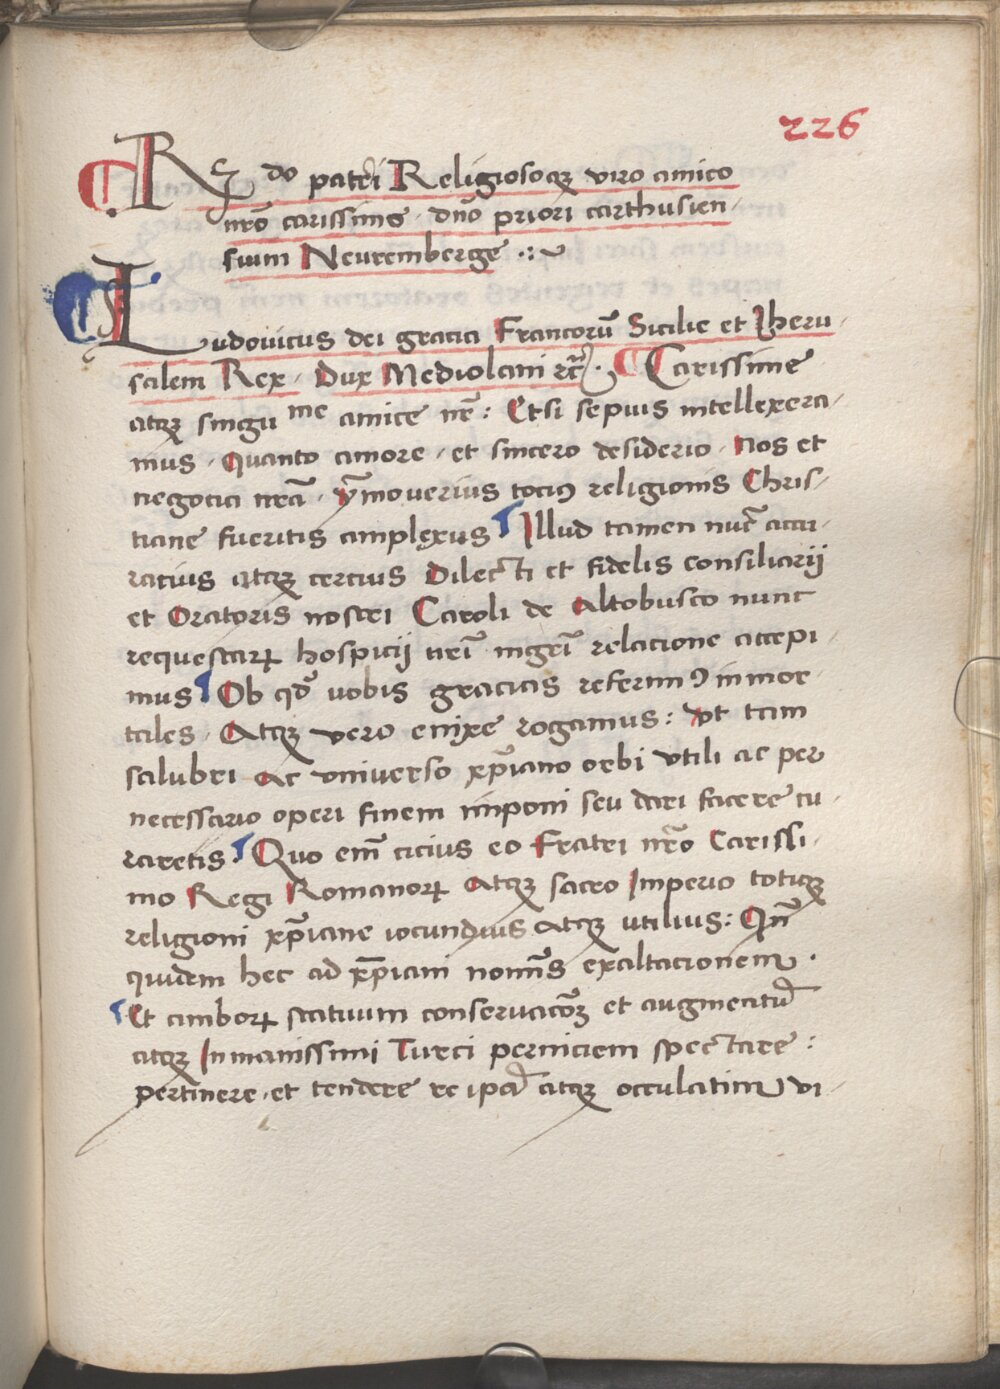 226
Re do patri Religiosoqꝫ viro amico
nrō carissimo · dnō priori carthusien
sium Neuremberge
Ludovicus dei gracia Francorū Sicilie et Iheru
salem Rex · Dux Mediolani ꝛcꝭ · Carissime
atqꝫ singu me amice nr̄ : Etsi sepius intellexera
mus · Quanto amore · et sincero desiderio · Nos et
negocia nrā · ymo verius tociꝰ religionis Chris
tiane fueritis amplexus Illud tamen nuc̄ accu
racius atqꝫ cercius Dilecti et fidelis consiliarii
et Oratoris nostri Caroli de Altobusco nunc
requestaꝝ hospicij nrī mgrī relacione accepi
mus Ob qd̄ vobis gracias referimꝰ inmor
tales · Atqꝫ vero enixe rogamus : vt tam
salubri ac vniverso xp̄iano orbi vtili ac per
necessario operi finem imponi seu dari facere cu
raretis Quo em̄ cicius eo Fratri nrō Carissi
mo Regi Romanoꝝ atqꝫ sacro Imperio totiqꝫ
religioni xp̄iane iocundius atqꝫ utilius : Qn̄
quidem hec ad xp̄iani nom̄s exaltacionem ·
Et amboꝝ statuum conservacōꝫ et augmentū
atqꝫ Inmanissimi Turci perniciem spectare :
pertinere · et tendere re ipa atqꝫ occulatim vi